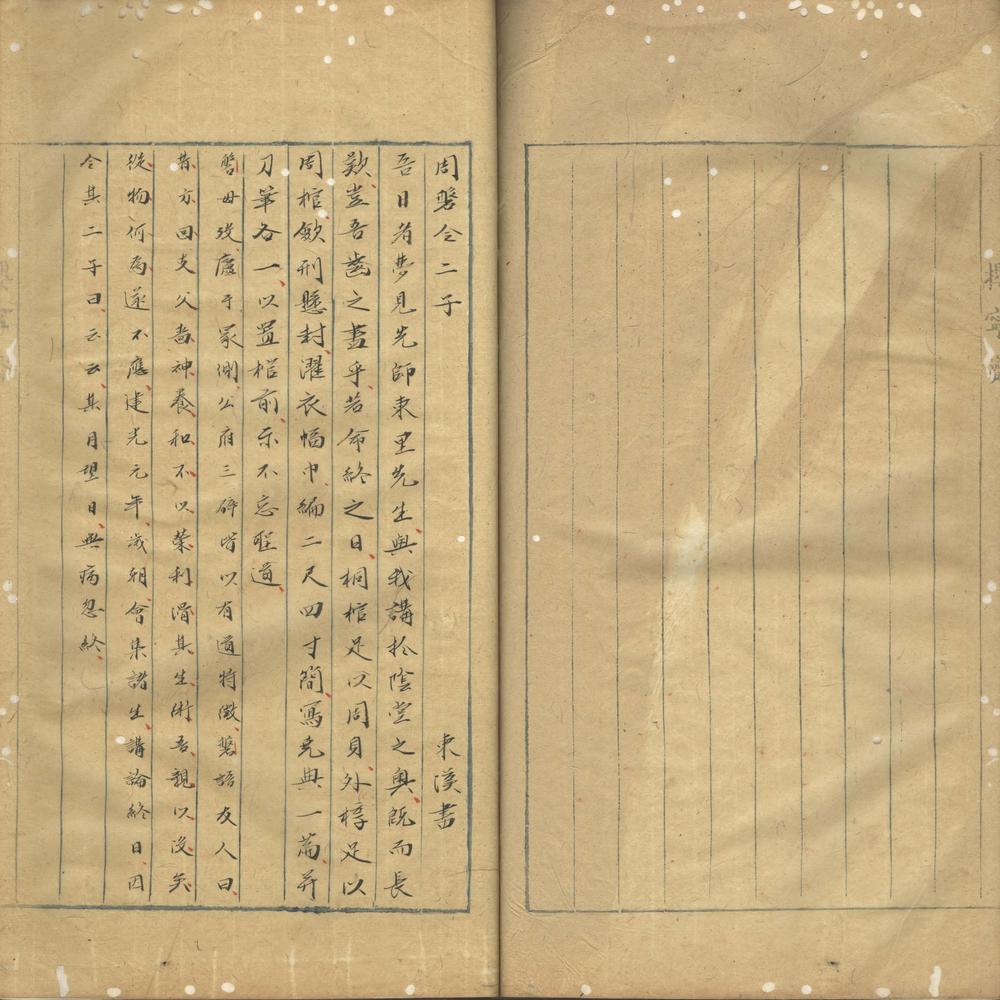 周磐令二子 東溪書
吾日者夢見先師東里先生與我講於陰堂之奧既而長
歎豈吾齒之盡乎若命終之日桐棺足以周身外槨足以
周棺歛形懸封濯衣幅巾編二尺四寸簡寫堯典一篇并
刀筆各一以置棺前示不忘聖道
磐母歿廬于冢側公府三辟皆以有道特徵磐語友人曰
昔方回支父嗇神養和不以榮利滑其生術吾親以沒矣
從物何為遂不應建光元年歲朝會集諸生講論終日因
令其二子曰云云其月望日無病忽終